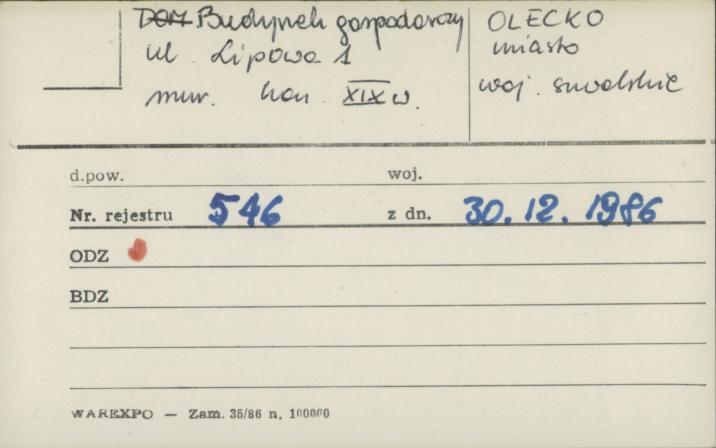 DOM Budynek gospodarczy
ul. Lipowa 1
mur. kon. XIX w.
OLECKO
miasto
woj. suwalskie
d.pow. woj.
Nr. rejestru 546 z dn. 30.12.1986
ODZ
BDZ
WAREXPO — Zam. 35/86 n. 100000